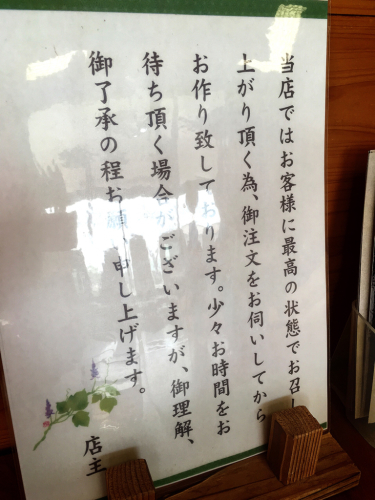 当店ではお客様に最高の状態でお召し
上がり頂く為、御注文をお伺いしてから
お作り致しております。少々お時間をお
待ち頂く場合がございますが、御理解、
御了承の程お願い申し上げます。
店主